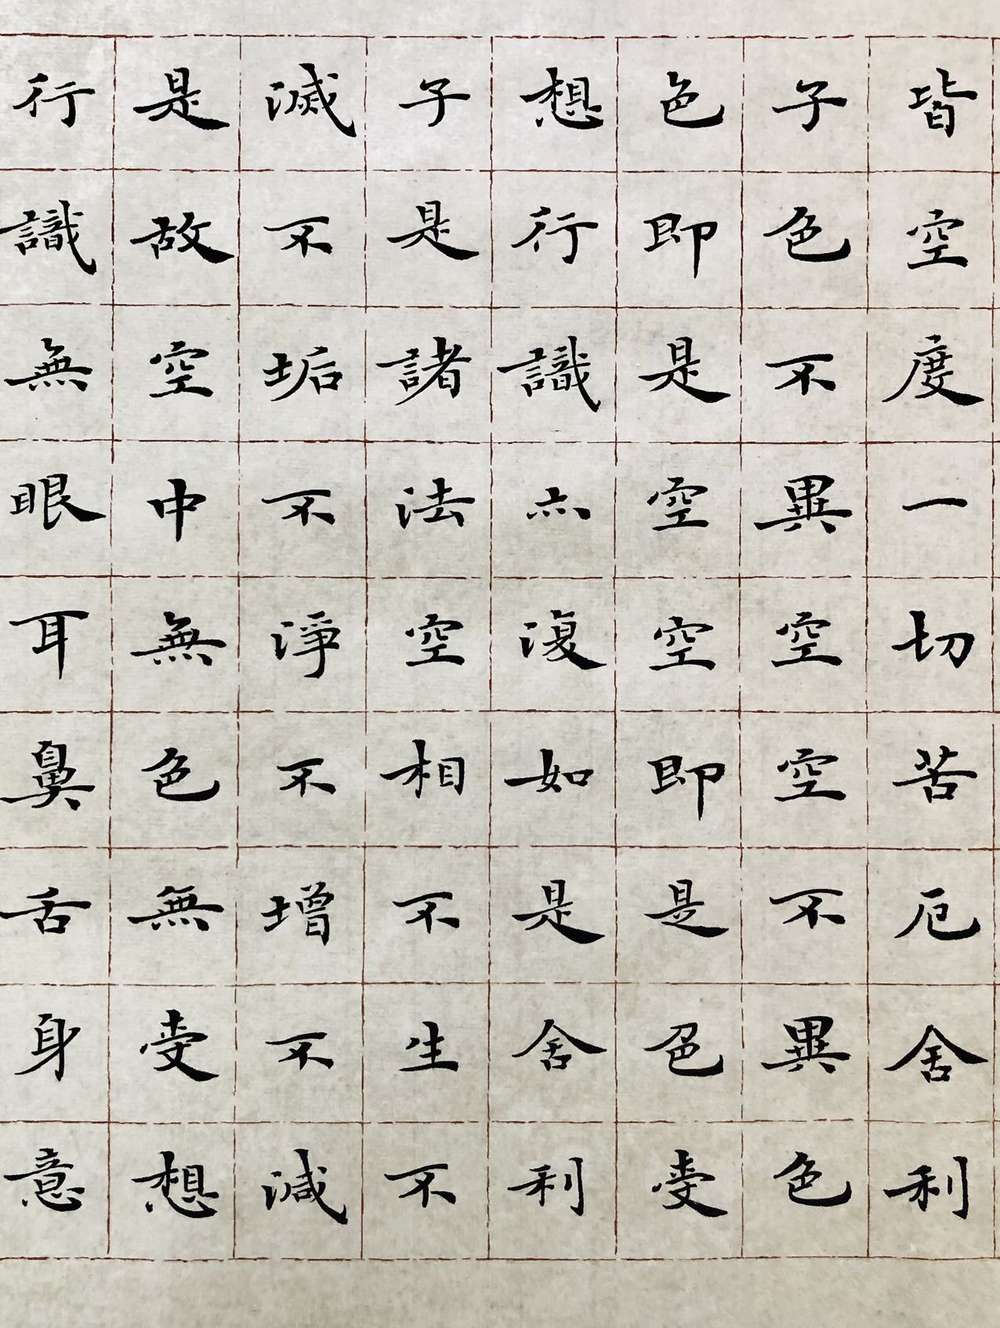 皆空度一切苦厄舍利
子色不異空空不異色
色即是空空即是色受
想行識亦復如是舍利
子是諸法空相不生不
滅不垢不淨不增不減
是故空中無色無受想
行識無眼耳鼻舌身意